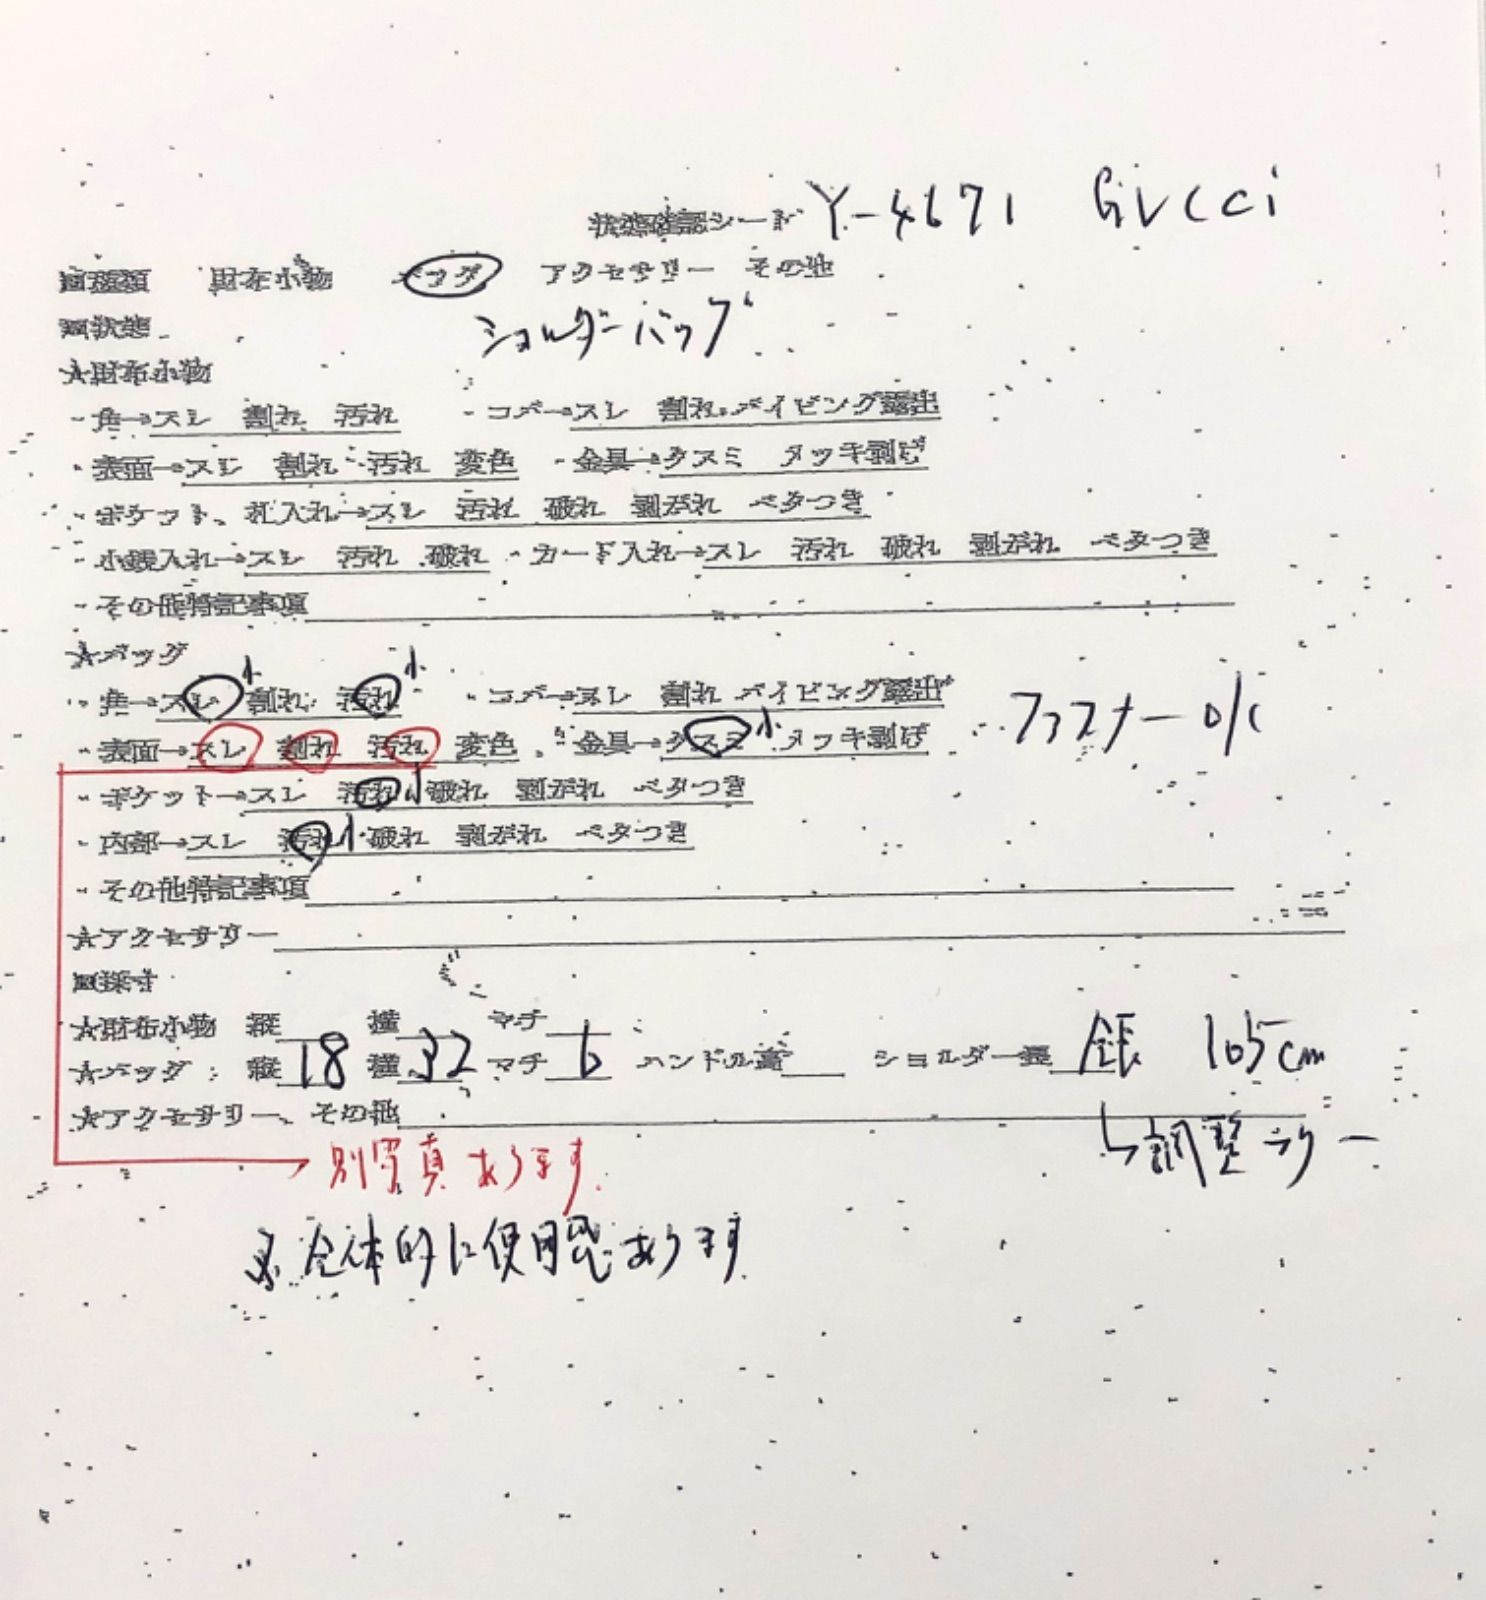 状態確認シート Y-4671 GUCCI
■種類 財布小物 バッグ アクセサリー その他
■状態 ショルダーバッグ
★財布小物
・角→スレ 割れ 汚れ ・コバ→スレ 割れ パイピング露出
・表面→スレ 割れ 汚れ 変色 ・金具→クスミ メッキ剥げ
・ポケット、札入れ→スレ 汚れ 破れ 剥がれ ベタつき
・小銭入れ→スレ 汚れ 破れ ・カード入れ→スレ 汚れ 破れ 剥がれ ベタつき
・その他特記事項
★バッグ
・角→スレ小 割れ 汚れ小 ・コバ→スレ 割れ パイピング露出
・表面→スレ 割れ 汚れ 変色 ・金具→クスミ小 メッキ剥げ ファスナーo/c
・ポケット→スレ 汚れ小 破れ 剥がれ ベタつき
・内部→スレ 汚れ小 破れ 剥がれ ベタつき
・その他特記事項
★アクセサリー
■採寸
★財布小物 縦 横 マチ
★バッグ: 縦 18 横 32 マチ 6 ハンドル高 ショルダー長 全長 105cm
★アクセサリー、その他
↳調整
→別写真あります。
※全体的に使用感あります